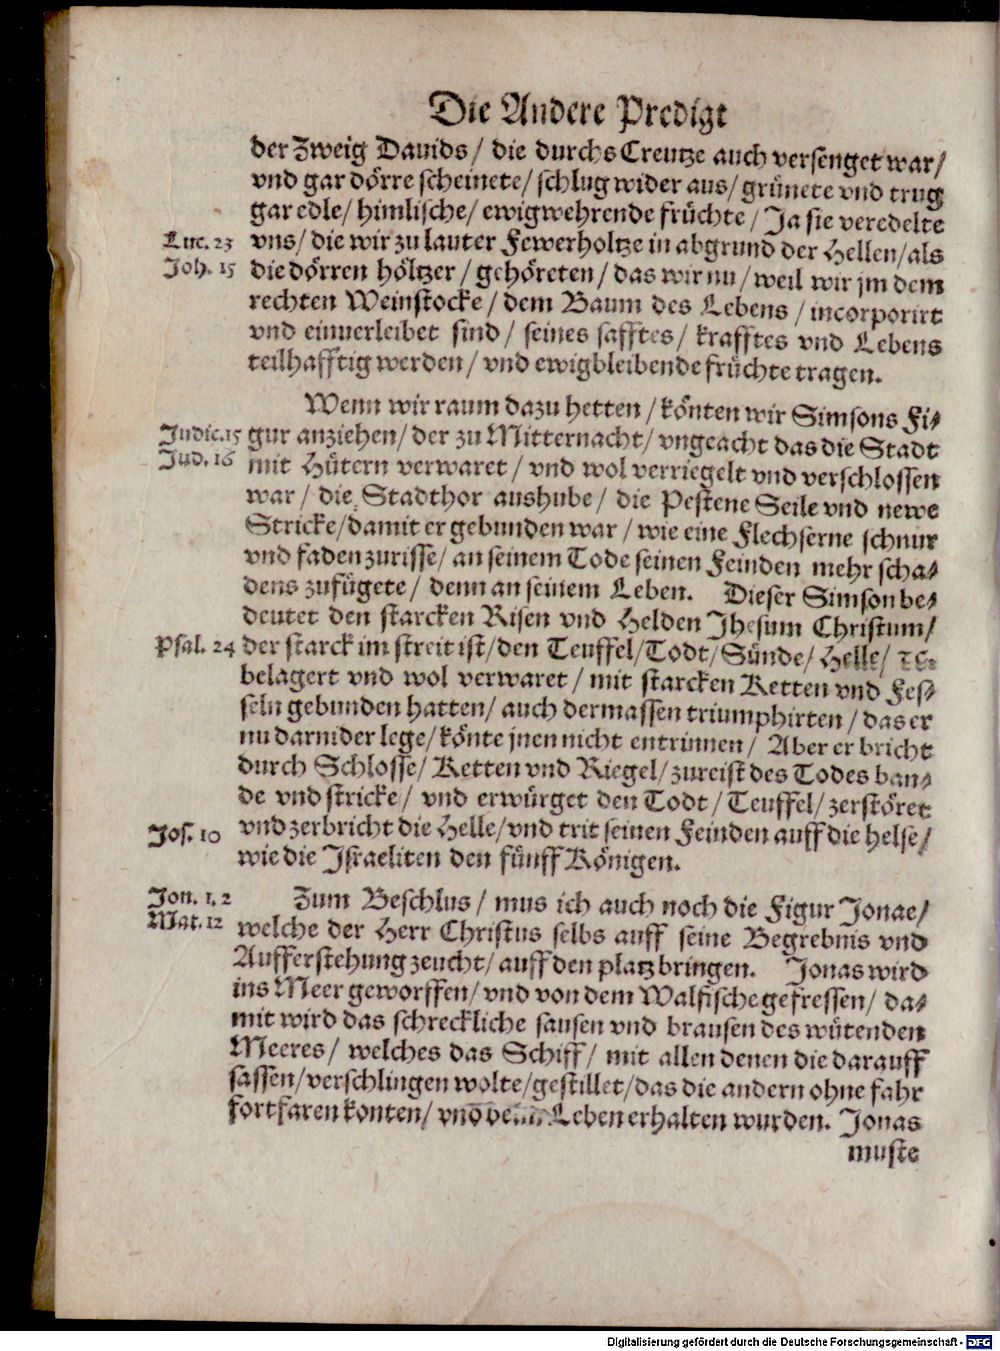 Die Andere Predigt
der Zweig Dauids / die durchs Creutze auch versenget war /
vnd gar dörre scheinete / schlug wider aus / grünete vnd trug
gar edle / himlische / ewigwehrende früchte / Ja sie veredelte
Luc. 23 vns / die wir zu lauter Fewerholtze in abgrund der Hellen / als
Joh. 15 die dörren höltzer / gehöreten / das wir nu / weil wir jm dem
rechten Weinstocke / dem Baum des Lebens / incorporirt
vnd einuerleibet sind / seines safftes / krafftes vnd Lebens
teilhafftig werden / vnd ewigbleibende früchte tragen.
Wenn wir raum dazu hetten / könten wir Simsons Fi-
Judic. 15 gur anziehen / der zu Mitternacht / vngeacht das die Stadt
Jud. 16 mit Hütern verwaret / vnd wol verriegelt vnd verschlossen
war / die Stadthor aushube / die Pestene Seile vnd newe
Stricke / damit er gebunden war / wie eine Flechserne schnur
vnd faden zurisse / an seinem Tode seinen Feinden mehr scha-
dens zufügete / denn an seinem Leben. Dieser Simson be-
deutet den starcken Risen vnd Helden Jhesum Christum /
Psal. 24 der starck im streit ist / den Teuffel / Todt / Sünde / Helle / ꝛc.
belagert vnd wol verwaret / mit starcken Ketten vnd Fes-
seln gebunden hatten / auch dermassen triumphirten / das er
nu darnider lege / könte jnen nicht entrinnen / Aber er bricht
durch Schlosse / Ketten vnd Riegel / zureist des Todes ban-
de vnd stricke / vnd erwürget den Todt / Teuffel / zerstöret
Jos. 10 vnd zerbricht die Helle / vnd trit seinen Feinden auff die helse /
wie die Israeliten den fünff Königen.
Jon. 1. 2 Zum Beschlus / mus ich auch noch die Figur Jonae /
Mat. 12 welche der Herr Christus selbs auff seine Begrebnis vnd
Aufferstehung zeucht / auff den platz bringen. Jonas wird
ins Meer geworffen / vnd von dem Walfische gefressen / da-
mit wird das schreckliche sausen vnd brausen des wütenden
Meeres / welches das Schiff / mit allen denen die darauff
sassen / verschlingen wolte / gestillet / das die andern ohne fahr
fortfaren konten / vnd Leben erhalten wurden. Jonas
muste
Digitalisierung gefördert durch die Deutsche Forschungsgemeinschaft - DFG